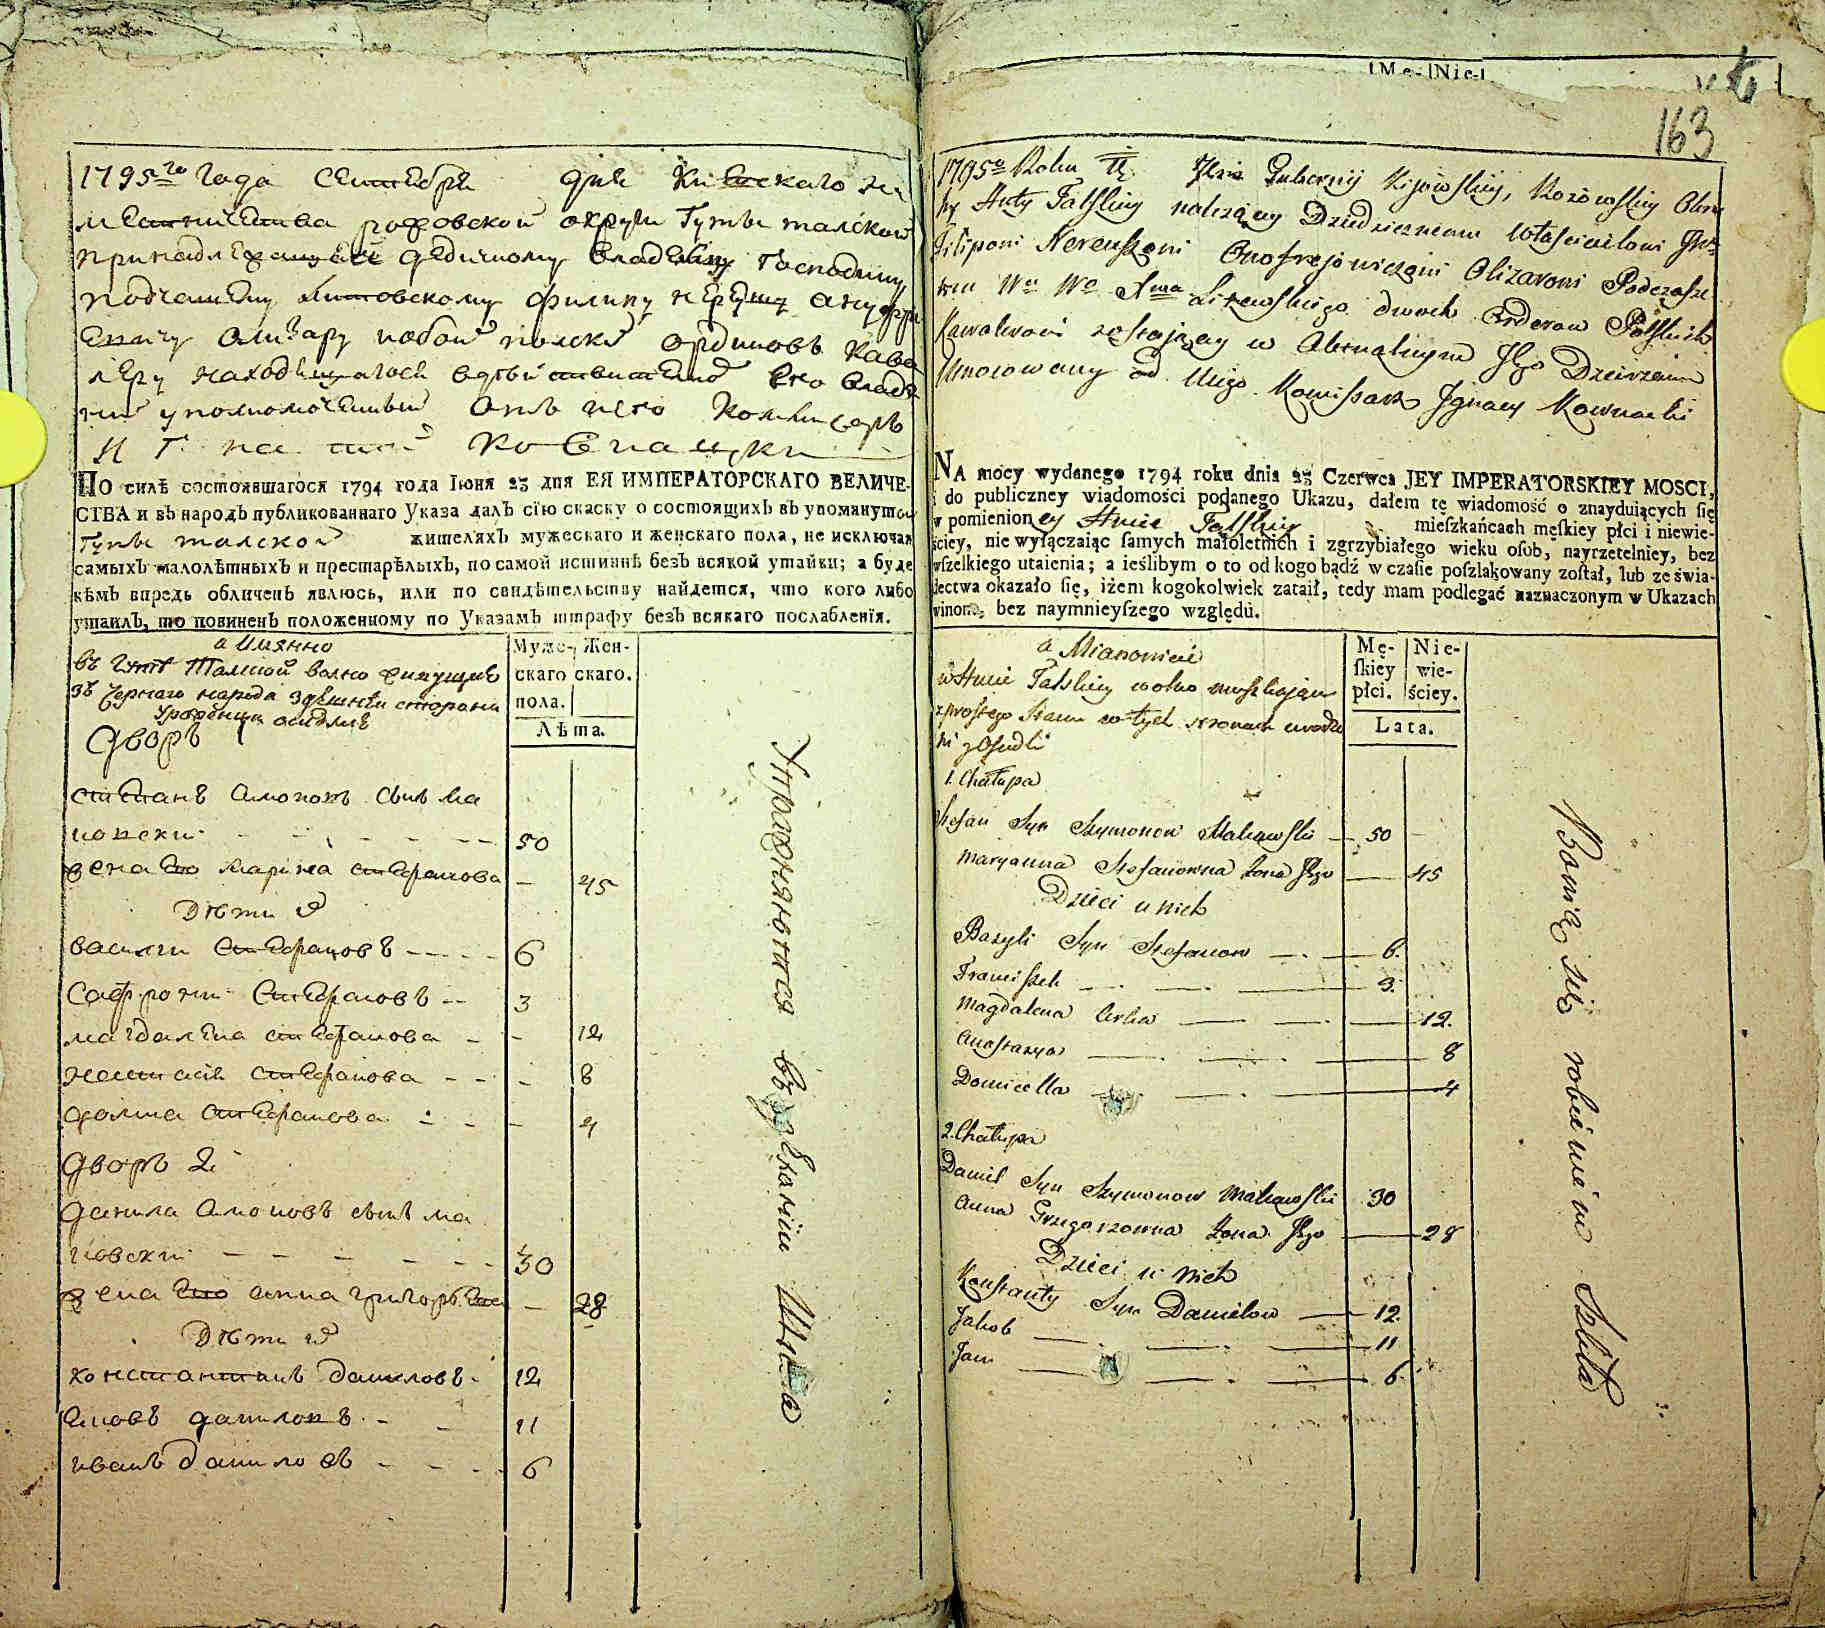 1795го года Сентебря дня Киевскаго на
местничества ровской округи Гуты талской
принадлежащее дедичному владельцу Господину
подчашему Литовскому Филипу Нереушу ануфри
евичу Олизару польски ордиповъ кава
леру находящагося
уполномоченный отъ него Комисаръ
ПО силѣ состоявшагося 1794 года Іюня 23 дня ЕЯ ИМПЕРАТОРСКАГО ВЕЛИЧЕ-
СТВА и въ народъ публикованнаго Указа далъ сію скаску о состоящихъ въ упомянутой
Гуты талской жителяхъ мужескаго и женскаго пола, не исключая
самыхъ малолѣтныхъ и престарѣлыхъ, по самой истиннѣ безъ всякой утайки; а буде
кѣмъ впредь обличенъ явлюсь, или по свидѣтельству найдется, что кого либо
утаилъ, то повиненъ положенному по Указамъ штрафу безъ всякаго послабленія.
а имянно
въ Гуте Талской волно живущие
зъ чернаго народа здешней стораны
Муже- Жен-
скаго скаго.
пола.
Лѣта.
Дворъ
стефанъ симоновъ сынъ ма
ковски 50
жена его марина стефанова 45
Дети
василии стефановъ 6
Стефановъ 3
магдалена стефанова 12
настася стефанова 8
домна стефанова 4
Дворъ 2
данила симоновъ сынъ ма
ковски 30
жена его анна григорьева 28
Дети
константинъ даниловъ 12
яковъ даниловъ 11
иванъ даниловъ 6
Упражняются въ деланіи
Mę- Nie-
163
1795o Roku Dnia Gubernij Kijowskiey,
Huty Talskiey należącey Dziedzicznemu Włascicielowi
Filiponi Nereuszowi Onofrejowiczowi Olizarowi Podczasze
mu Litewskiego dwoch Orderow Polskich
Kawalerowi zostaiącey w Aktualnym Jego Dzierżeniu
Umocowany od Niego Komissarz Jgnacy Kownacki
NA mocy wydanego 1794 roku dnia 23 Czerwca JEY IMPERATORSKIEY MOSCI,
i do publiczney wiadomości podanego Ukazu, dałem tę wiadomość o znayduiących się
w pomienioney Hucie Talskiey mieſzkańcach męſkiey płci i niewie-
ściey, nie wyłączaiąc ſamych małoletnich i zgrzybiałego wieku oſób, nayrzetelniey, bez
wſzelkiego utaienia; a ieślibym o to od kogo bądź w czaſie poſzlakowany zoſtał, lub ze świa-
dectwa okazało się, iżem kogokolwiek zataił, tedy mam podlegać naznaczonym w Ukazach
winom, bez naymnieyſzego względu.
a Mianowicie
w Hucie Talskiey wolno mieszkaiący
z prostego Stanu w tych stronach urodze
ni
Mę- Nie-
ſkiey wie-
płci. ściey.
Lata.
1. Chałupa
Stefan Syn Szymonow Makowski 50
Maryanna Stefanowna Żona Jego 45
Dzieci u nich
Bazyli Syn Stefanow 6.
Franciszek 3.
Magdalena Corka 12.
Anastazya 8
Domicella 4
2. Chałupa
Daniel Syn Szymonow Makowski 30
Anna Grzegorzowna Żona Jego 28
Dzieci u nich
Konstanty Syn Danielow 12.
Jakob 11
Jan 6.
Bawią się robieniem Szkła